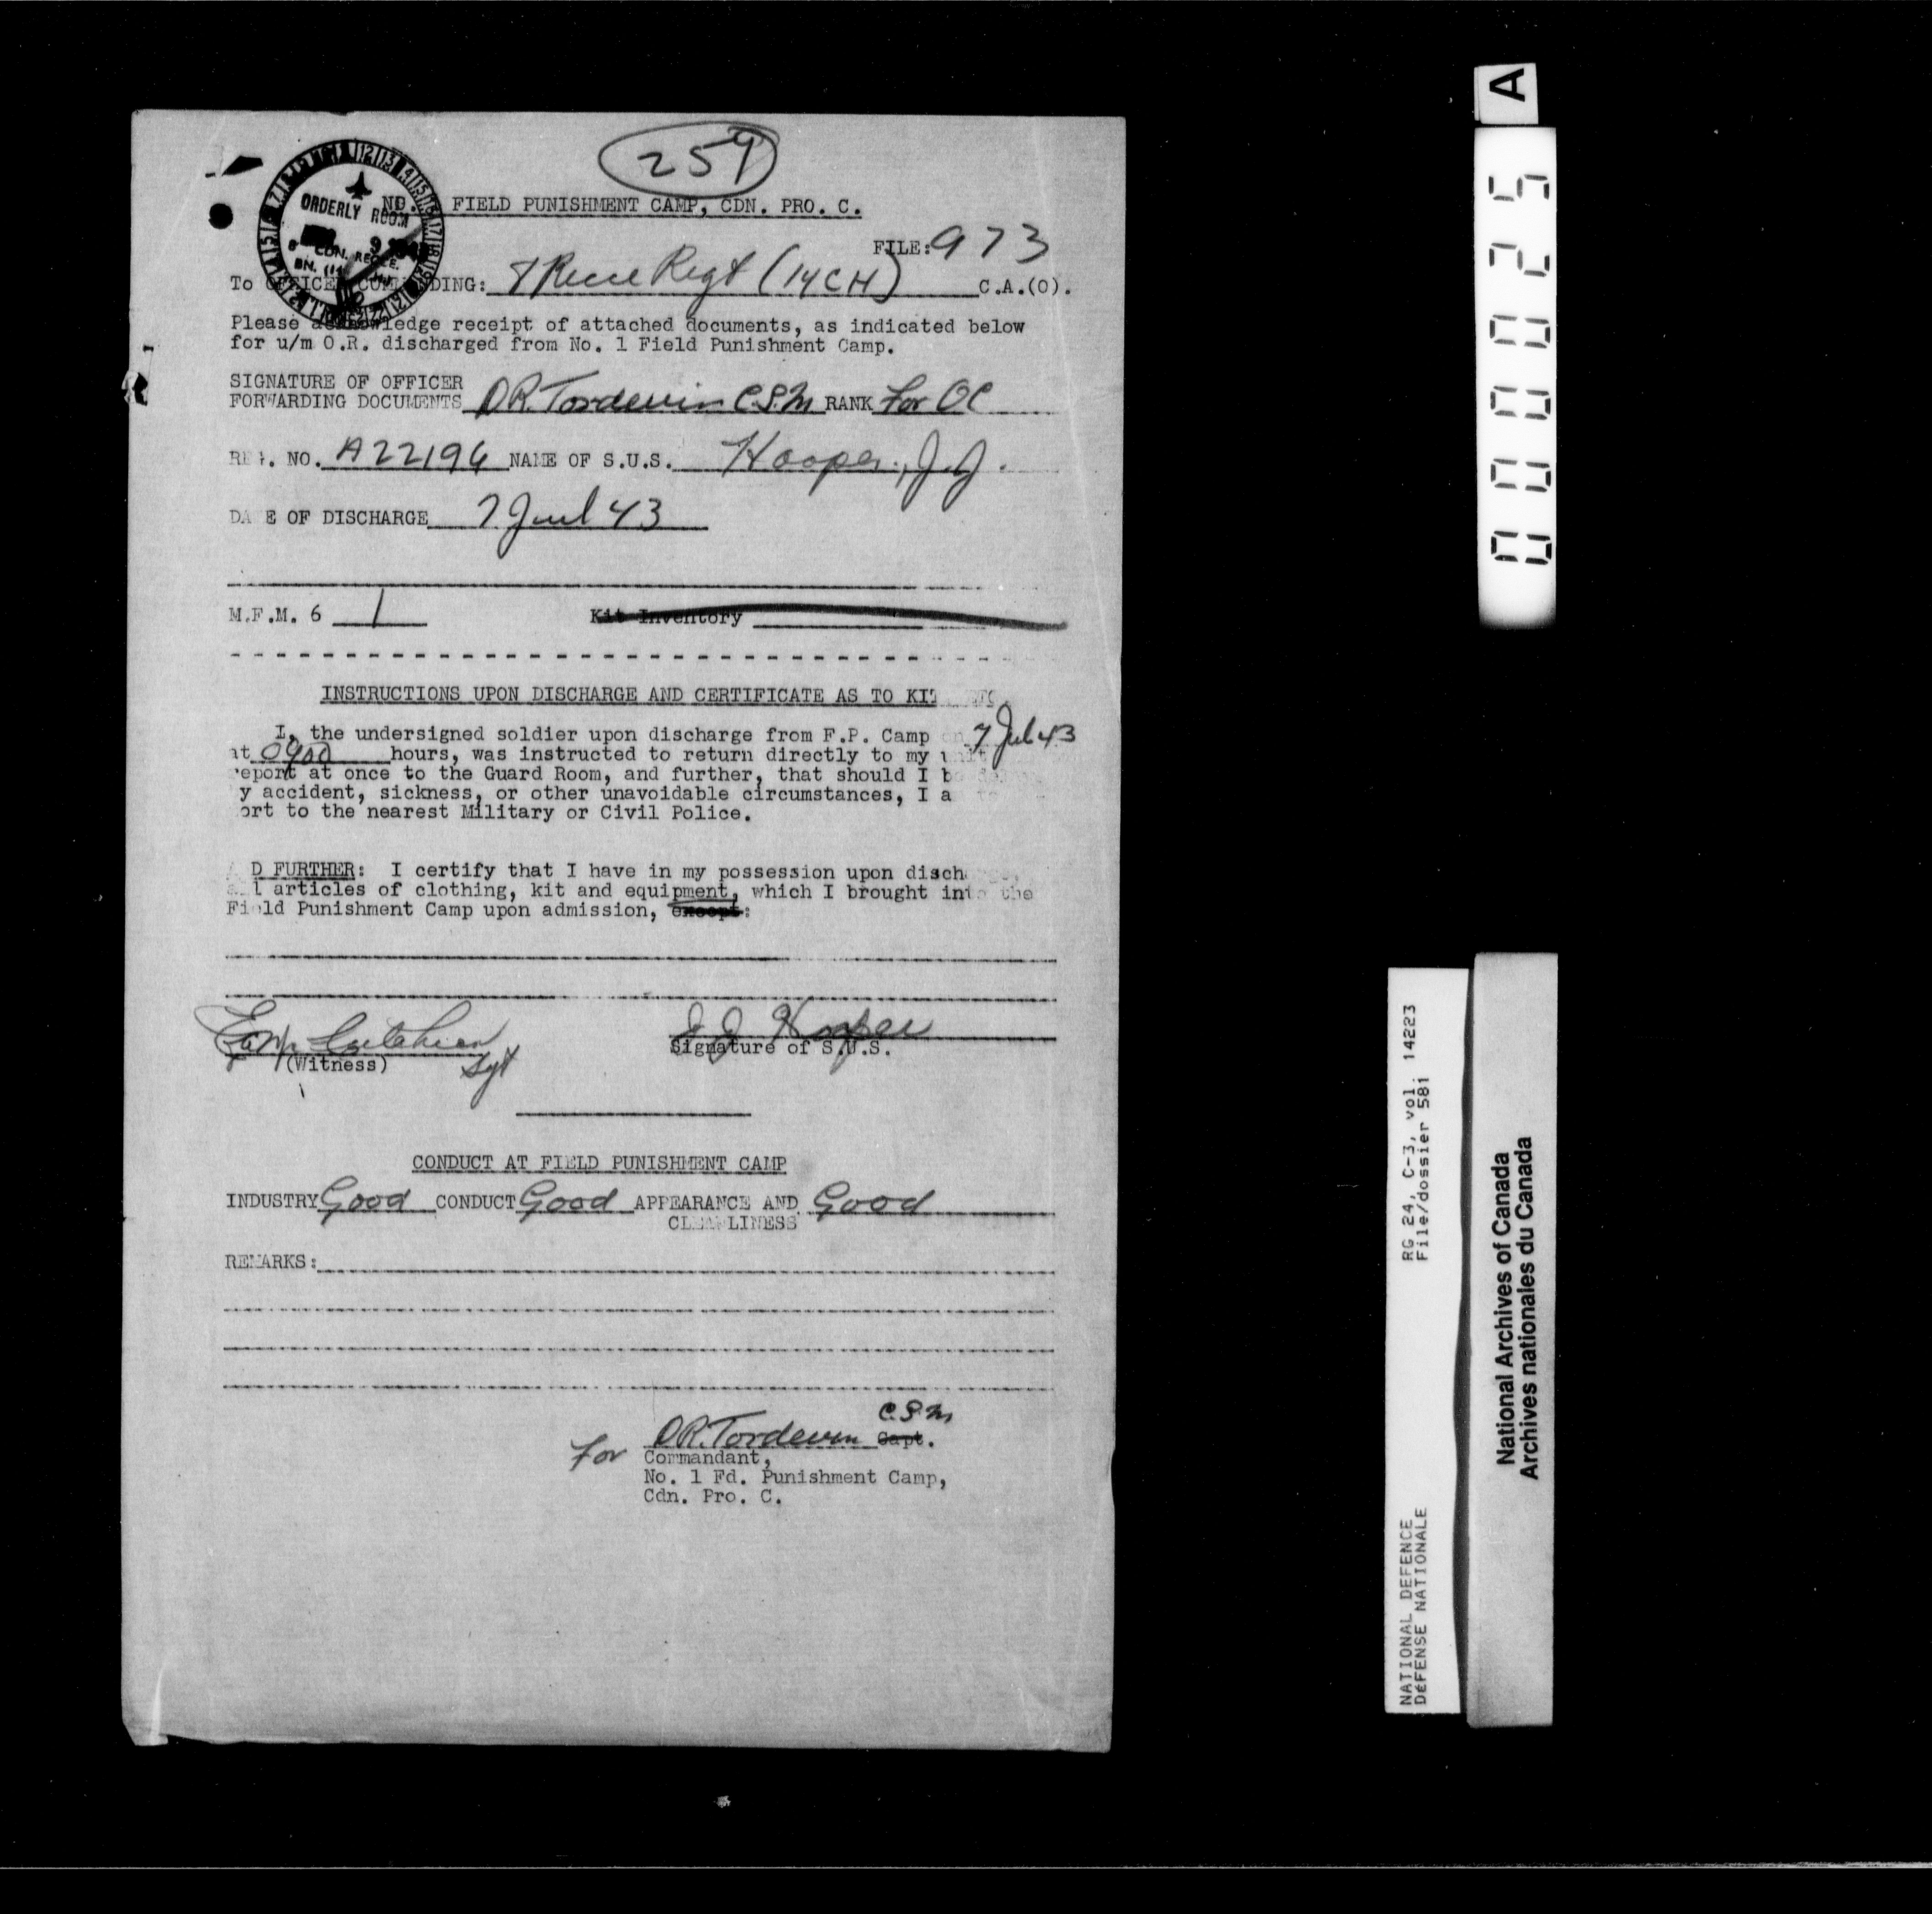 259
ORDERLY ROOM
CDN. RECCE.
BN. (14
NO. FIELD PUNISHMENT CAMP, CDN. PRO. C.
FILE: 973
To OFFICER COMMANDING: 8 Recce Regt (14 CH) C.A.(O).
Please acknowledge receipt of attached documents, as indicated below
for u/m O.R. discharged from No. 1 Field Punishment Camp.
SIGNATURE OF OFFICER
FORWARDING DOCUMENTS D.R. Tordevin C.S.M RANK For OC
REG. NO. A22196 NAME OF S.U.S. Hooper, J.J.
DATE OF DISCHARGE 7 Jul 43
M.F.M. 6 1 Kit Inventory
INSTRUCTIONS UPON DISCHARGE AND CERTIFICATE AS TO KIT
I, the undersigned soldier upon discharge from F.P. Camp on 7 Jul 43
at 0900 hours, was instructed to return directly to my unit
report at once to the Guard Room, and further, that should I be
y accident, sickness, or other unavoidable circumstances, I a
ort to the nearest Military or Civil Police.
AND FURTHER: I certify that I have in my possession upon discharge,
all articles of clothing, kit and equipment, which I brought into the
Field Punishment Camp upon admission, except:
J J Hooper
(Witness) Sgt Signature of S.U.S.
CONDUCT AT FIELD PUNISHMENT CAMP
INDUSTRY Good CONDUCT Good APPEARANCE AND Good
CLEANLINESS
REMARKS:
C.S.M
For D.R. Tordevin Capt.
Commandant,
No. 1 Fd. Punishment Camp,
Cdn. Pro. C.
A
000025
RG 24, C-3, vol. 14223
File/dossier 581
NATIONAL DEFENCE
DÉFENSE NATIONALE
National Archives of Canada
Archives nationales du Canada